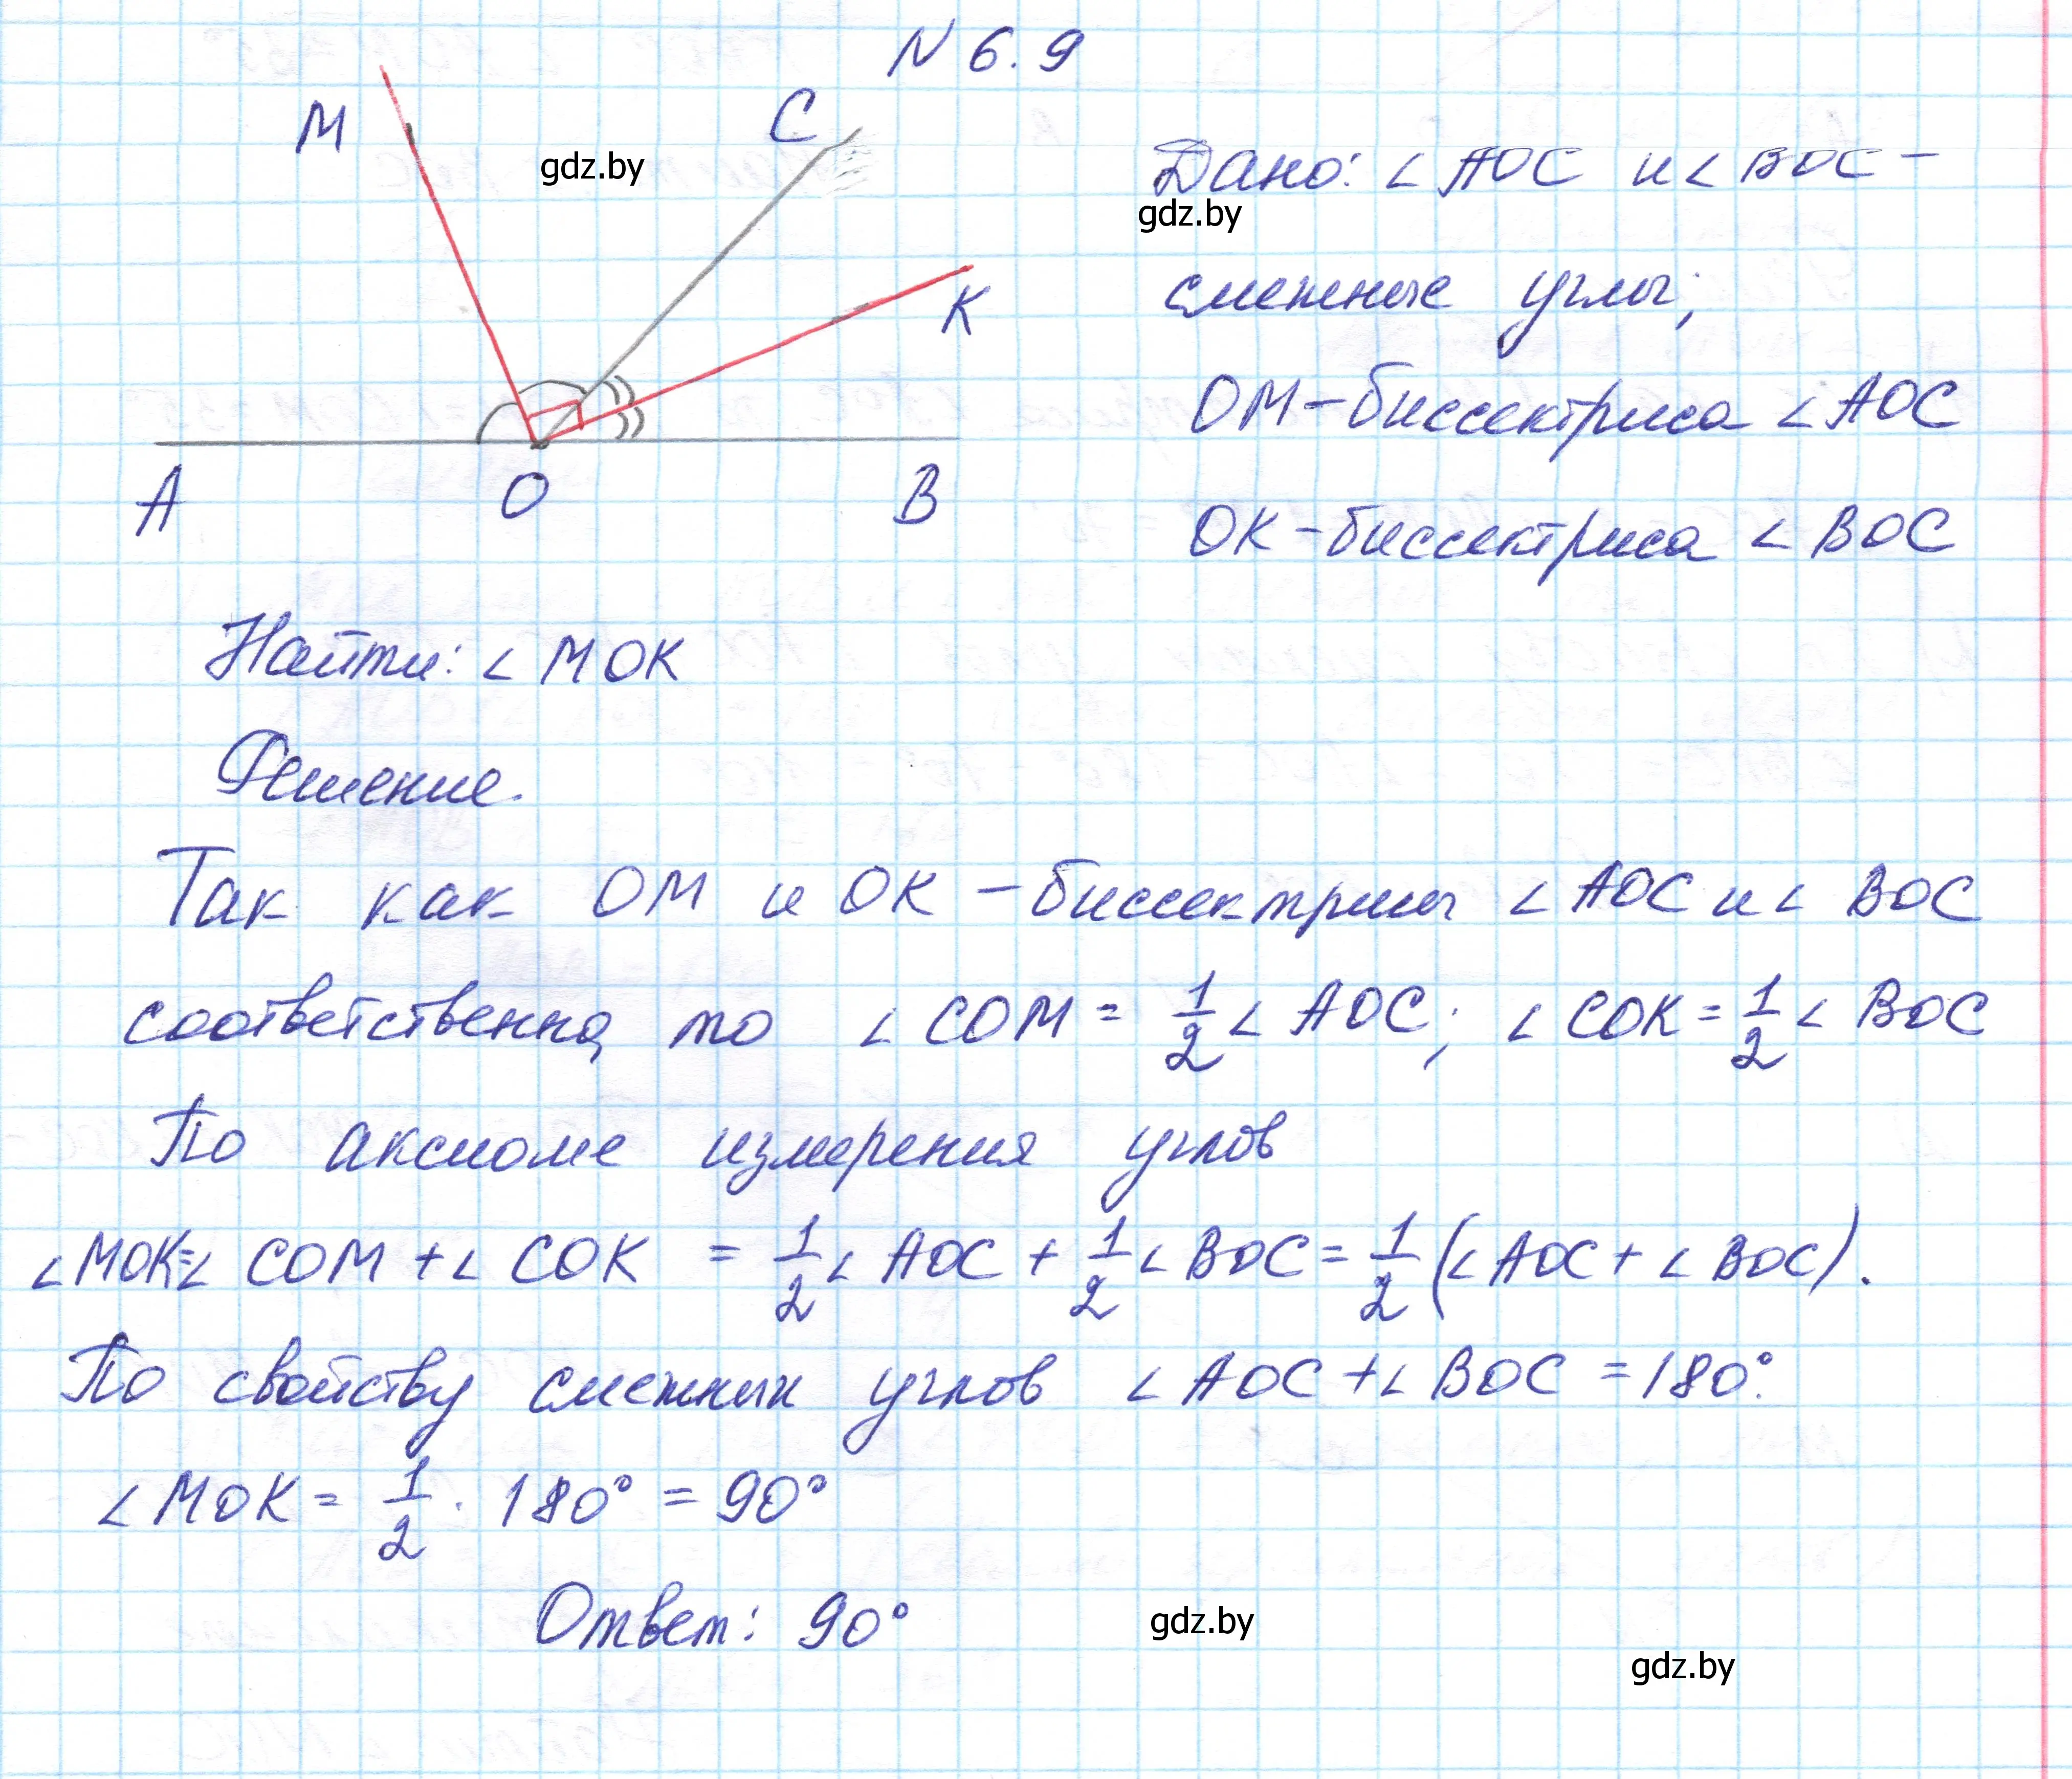 N 6.9
M
C
gdz.by
K
A
O
B
Дано: ∠ AOC и ∠ BOC –
gdz.by
смежные углы;
OM – биссектриса ∠ AOC
OK – биссектриса ∠ BOC
Найти: ∠ MOK
Решение.
Так как OM и OK – биссектрисы ∠ AOC и ∠ BOC
соответственно, то ∠ COM = 1/2 ∠ AOC; ∠ COK = 1/2 ∠ BOC
По аксиоме измерения углов
∠ MOK = ∠ COM + ∠ COK = 1/2 ∠ AOC + 1/2 ∠ BOC = 1/2 (∠ AOC + ∠ BOC).
По свойству смежных углов ∠ AOC + ∠ BOC = 180°.
∠ MOK = 1/2 · 180° = 90°
Ответ: 90°
gdz.by
gdz.by